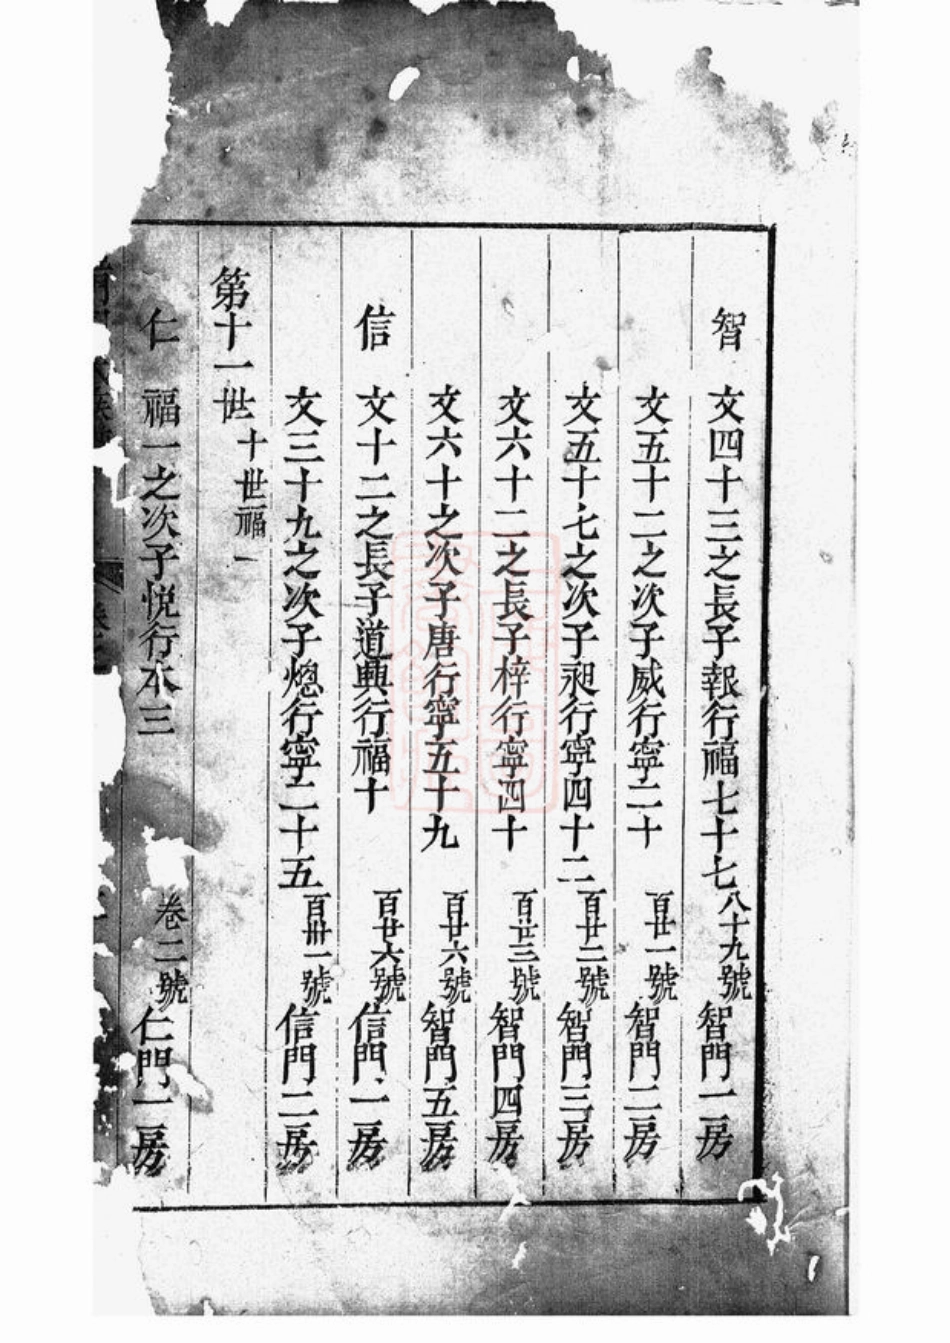 智　文四十三之長子報行福七十七　八十九號　智門一房
文五十二之次子威行寧二十　百廿一號　智門二房
文五十七之次子昶行寧四十二　百廿二號　智門三房
文六十二之長子梓行寧四十　百廿三號　智門四房
文六十之次子唐行寧五十九　百廿六號　智門五房
信　文十二之長子道興行福十　百廿六號　信門一房
文三十九之次子熜行寧二十五　百卅一號　信門二房
第十一世　十世福一
仁　福一之次子悅行本三　卷二號　仁門一房